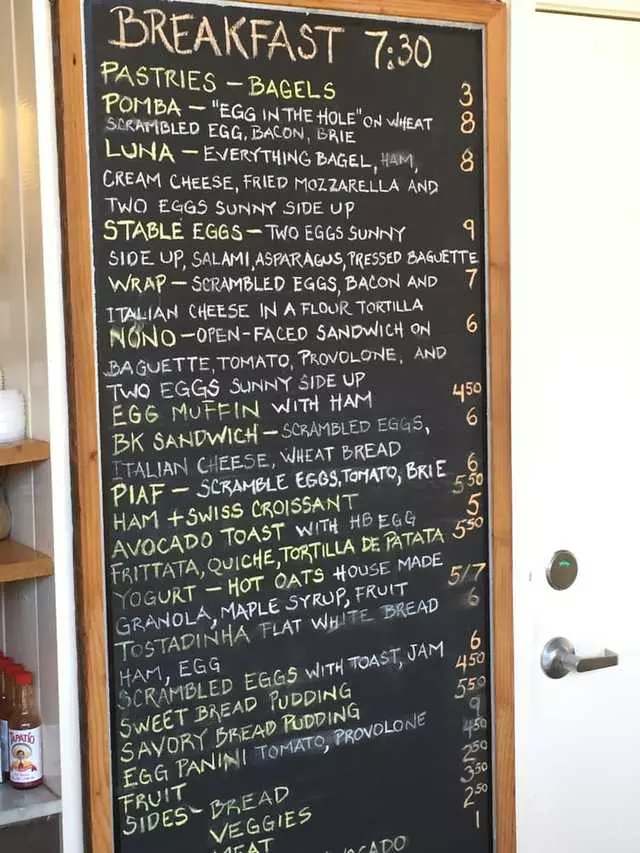 BREAKFAST 7:30
PASTRIES – BAGELS 3
POMBA – "EGG IN THE HOLE" ON WHEAT 8
SCRAMBLED EGG, BACON, BRIE
LUNA – EVERYTHING BAGEL, HAM, 8
CREAM CHEESE, FRIED MOZZARELLA AND
TWO EGGS SUNNY SIDE UP
STABLE EGGS – TWO EGGS SUNNY 9
SIDE UP, SALAMI, ASPARAGUS, PRESSED BAGUETTE
WRAP – SCRAMBLED EGGS, BACON AND 7
ITALIAN CHEESE IN A FLOUR TORTILLA
NONO – OPEN-FACED SANDWICH ON 6
BAGUETTE, TOMATO, PROVOLONE, AND
TWO EGGS SUNNY SIDE UP
EGG MUFFIN WITH HAM 4 50
BK SANDWICH – SCRAMBLED EGGS, 6
ITALIAN CHEESE, WHEAT BREAD
PIAF – SCRAMBLE EGGS, TOMATO, BRIE 6
HAM + SWISS CROISSANT 5 50
AVOCADO TOAST WITH HB EGG 5
FRITTATA, QUICHE, TORTILLA DE PATATA 5 50
YOGURT – HOT OATS HOUSE MADE
GRANOLA, MAPLE SYRUP, FRUIT 5/7
TOSTADINHA FLAT WHITE BREAD 6
HAM, EGG
SCRAMBLED EGGS WITH TOAST, JAM 6
SWEET BREAD PUDDING 4 50
SAVORY BREAD PUDDING 5 50
EGG PANINI TOMATO, PROVOLONE 9
FRUIT 4 50
SIDES – BREAD 2 50
VEGGIES 3 50
MEAT 2 50
AVOCADO 1
TAPATÍO